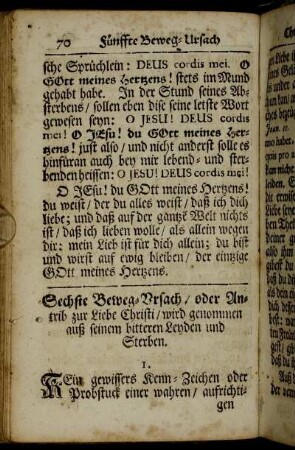 70 Fünffte Beweg-Ursach
sche Sprüchlein: DEUS cordis mei. O
GOtt meines Hertzens! stets im Mund
gehabt habe. In der Stund seines Ab-
sterbens/ sollen eben dise seine letste Wort
gewesen seyn: O JESU! DEUS cordis
mei! O JEsu! du GOtt meines Her-
tzens! just also/ und nicht anderst solle es
hinfüran auch bey mir lebend- und ster-
benden heissen: O JESU! DEUS cordis mei!
O JEsu! du GOtt meines Hertzens!
du weist/ der du alles weist/ daß ich dich
liebe; und daß auf der gantzē Welt nichts
ist/ daß ich lieben wolle/ als allein wegen
dir: mein Lieb ist für dich allein; du bist
und wirst auf ewig bleiben/ der eintzige
GOtt meines Hertzens.
Sechste Beweg-Ursach/ oder An-
trib zur Liebe Christi/ wird genommen
auß seinem bitteren Leyden und
Sterben.
1.
KEin gewissers Kenn-Zeichen oder
Probstuck einer wahren/ aufrichti-
gen